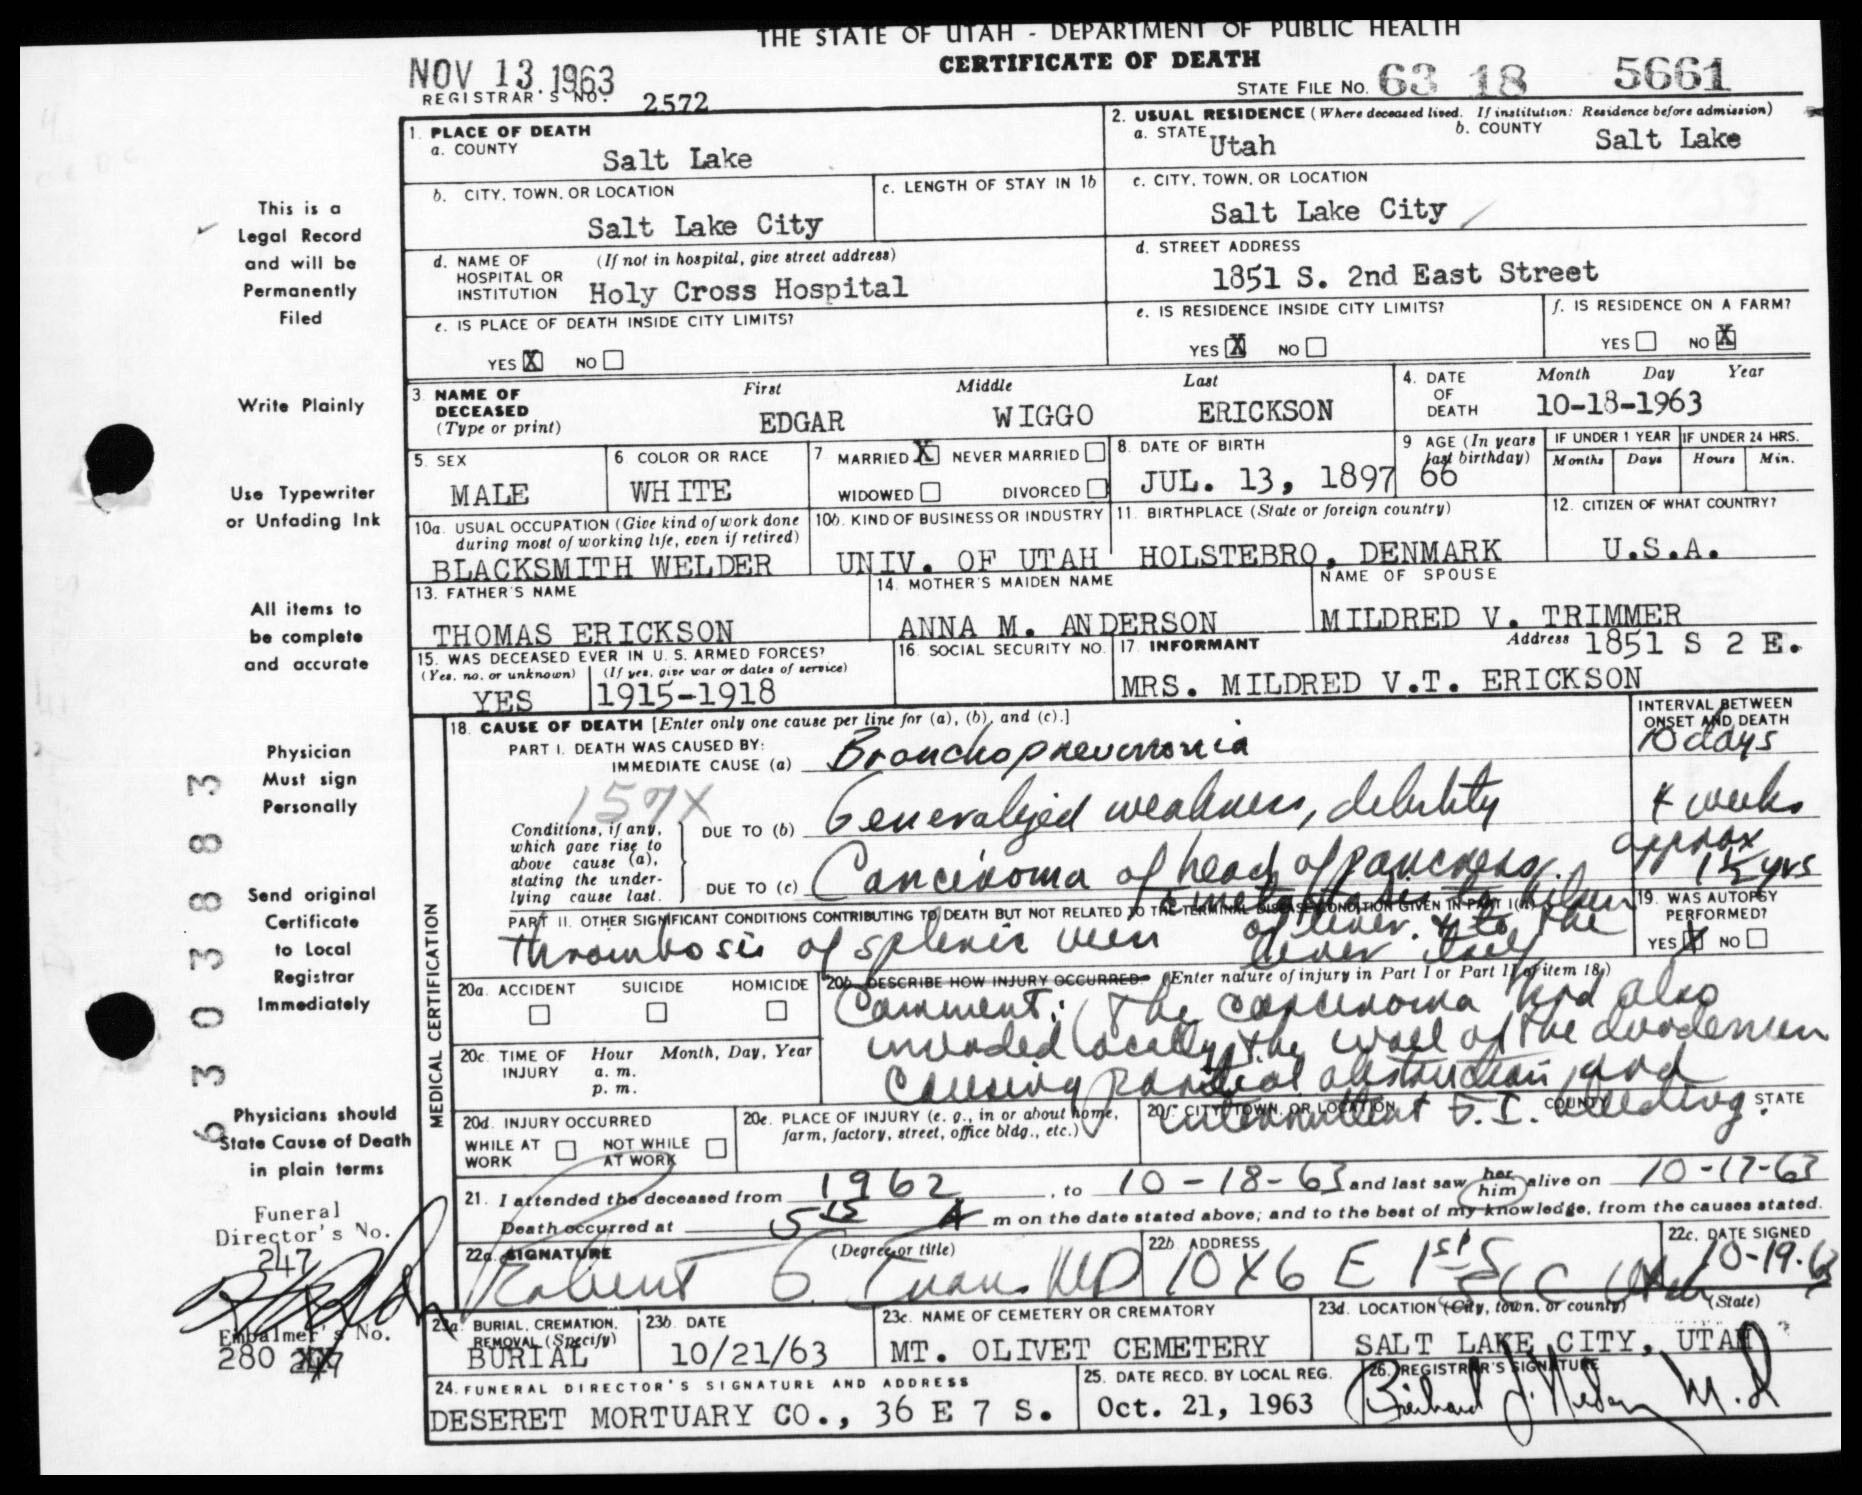 THE STATE OF UTAH - DEPARTMENT OF PUBLIC HEALTH
CERTIFICATE OF DEATH
NOV 13 1963
REGISTRAR'S NO. 2572
STATE FILE NO. 63 18 5661
1. PLACE OF DEATH
a. COUNTY
Salt Lake
2. USUAL RESIDENCE (Where deceased lived. If institution: Residence before admission)
a. STATE Utah
b. COUNTY Salt Lake
b. CITY, TOWN, OR LOCATION
Salt Lake City
c. LENGTH OF STAY IN 1b
c. CITY, TOWN, OR LOCATION
Salt Lake City
d. NAME OF HOSPITAL OR INSTITUTION (If not in hospital, give street address)
Holy Cross Hospital
d. STREET ADDRESS
1851 S. 2nd East Street
e. IS PLACE OF DEATH INSIDE CITY LIMITS?
YES X NO
e. IS RESIDENCE INSIDE CITY LIMITS?
YES X NO
f. IS RESIDENCE ON A FARM?
YES NO X
3. NAME OF DECEASED (Type or print)
First Middle Last
EDGAR WIGGO ERICKSON
4. DATE OF DEATH
Month Day Year
10-18-1963
5. SEX
MALE
6. COLOR OR RACE
WHITE
7. MARRIED X NEVER MARRIED
WIDOWED DIVORCED
8. DATE OF BIRTH
JUL. 13, 1897
9 AGE (In years last birthday)
66
IF UNDER 1 YEAR
Months Days
IF UNDER 24 HRS.
Hours Min.
10a. USUAL OCCUPATION (Give kind of work done during most of working life, even if retired)
BLACKSMITH WELDER
10b. KIND OF BUSINESS OR INDUSTRY
UNIV. OF UTAH
11. BIRTHPLACE (State or foreign country)
HOLSTEBRO, DENMARK
12. CITIZEN OF WHAT COUNTRY?
U.S.A.
13. FATHER'S NAME
THOMAS ERICKSON
14. MOTHER'S MAIDEN NAME
ANNA M. ANDERSON
NAME OF SPOUSE
MILDRED V. TRIMMER
15. WAS DECEASED EVER IN U. S. ARMED FORCES?
(Yes, no, or unknown) (If yes, give war or dates of service)
YES 1915-1918
16. SOCIAL SECURITY NO.
17. INFORMANT Address 1851 S 2 E.
MRS. MILDRED V.T. ERICKSON
18. CAUSE OF DEATH [Enter only one cause per line for (a), (b), and (c).]
INTERVAL BETWEEN ONSET AND DEATH
PART I. DEATH WAS CAUSED BY:
IMMEDIATE CAUSE (a) Bronchopneumonia 10 days
157X
Conditions, if any, which gave rise to above cause (a), stating the underlying cause last.
DUE TO (b) Generalized weakness, debility 4 weeks
DUE TO (c) Carcinoma of head of pancreas approx 1½ yrs
c metastases to hilum
of liver. & to the
liver itself
PART II. OTHER SIGNIFICANT CONDITIONS CONTRIBUTING TO DEATH BUT NOT RELATED TO THE TERMINAL DISEASE CONDITION GIVEN IN PART I(a)
Thrombosis of splenic vein
19. WAS AUTOPSY PERFORMED?
YES X NO
MEDICAL CERTIFICATION
20a. ACCIDENT SUICIDE HOMICIDE
20b. DESCRIBE HOW INJURY OCCURRED. (Enter nature of injury in Part I or Part II of item 18.)
Comment: The carcinoma had also
invaded locally the wall of the duodenum
causing partial obstruction and
intermittent G.I. bleeding.
20c. TIME OF INJURY Hour Month, Day, Year
a. m.
p. m.
20d. INJURY OCCURRED
WHILE AT WORK NOT WHILE AT WORK
20e. PLACE OF INJURY (e. g., in or about home, farm, factory, street, office bldg., etc.)
20f. CITY, TOWN, OR LOCATION COUNTY STATE
21. I attended the deceased from 1962, to 10-18-63 and last saw her him alive on 10-17-63
Death occurred at 5 15 A m on the date stated above; and to the best of my knowledge, from the causes stated.
22a. SIGNATURE (Degree or title)
Robert G. Evans MD
22b. ADDRESS
10X6 E 1st S SLC Utah
22c. DATE SIGNED
10-19-63
23a. BURIAL, CREMATION, REMOVAL (Specify)
BURIAL
23b. DATE
10/21/63
23c. NAME OF CEMETERY OR CREMATORY
MT. OLIVET CEMETERY
23d. LOCATION (City, town, or county) (State)
SALT LAKE CITY, UTAH
24. FUNERAL DIRECTOR'S SIGNATURE AND ADDRESS
DESERET MORTUARY CO., 36 E 7 S.
25. DATE RECD. BY LOCAL REG.
Oct. 21, 1963
26. REGISTRAR'S SIGNATURE
M.D
This is a
Legal Record
and will be
Permanently
Filed
Write Plainly
Use Typewriter
or Unfading Ink
All items to
be complete
and accurate
Physician
Must sign
Personally
Send original
Certificate
to Local
Registrar
Immediately
Physicians should
State Cause of Death
in plain terms
6303883
Funeral
Director's No.
247
Embalmer's No.
280